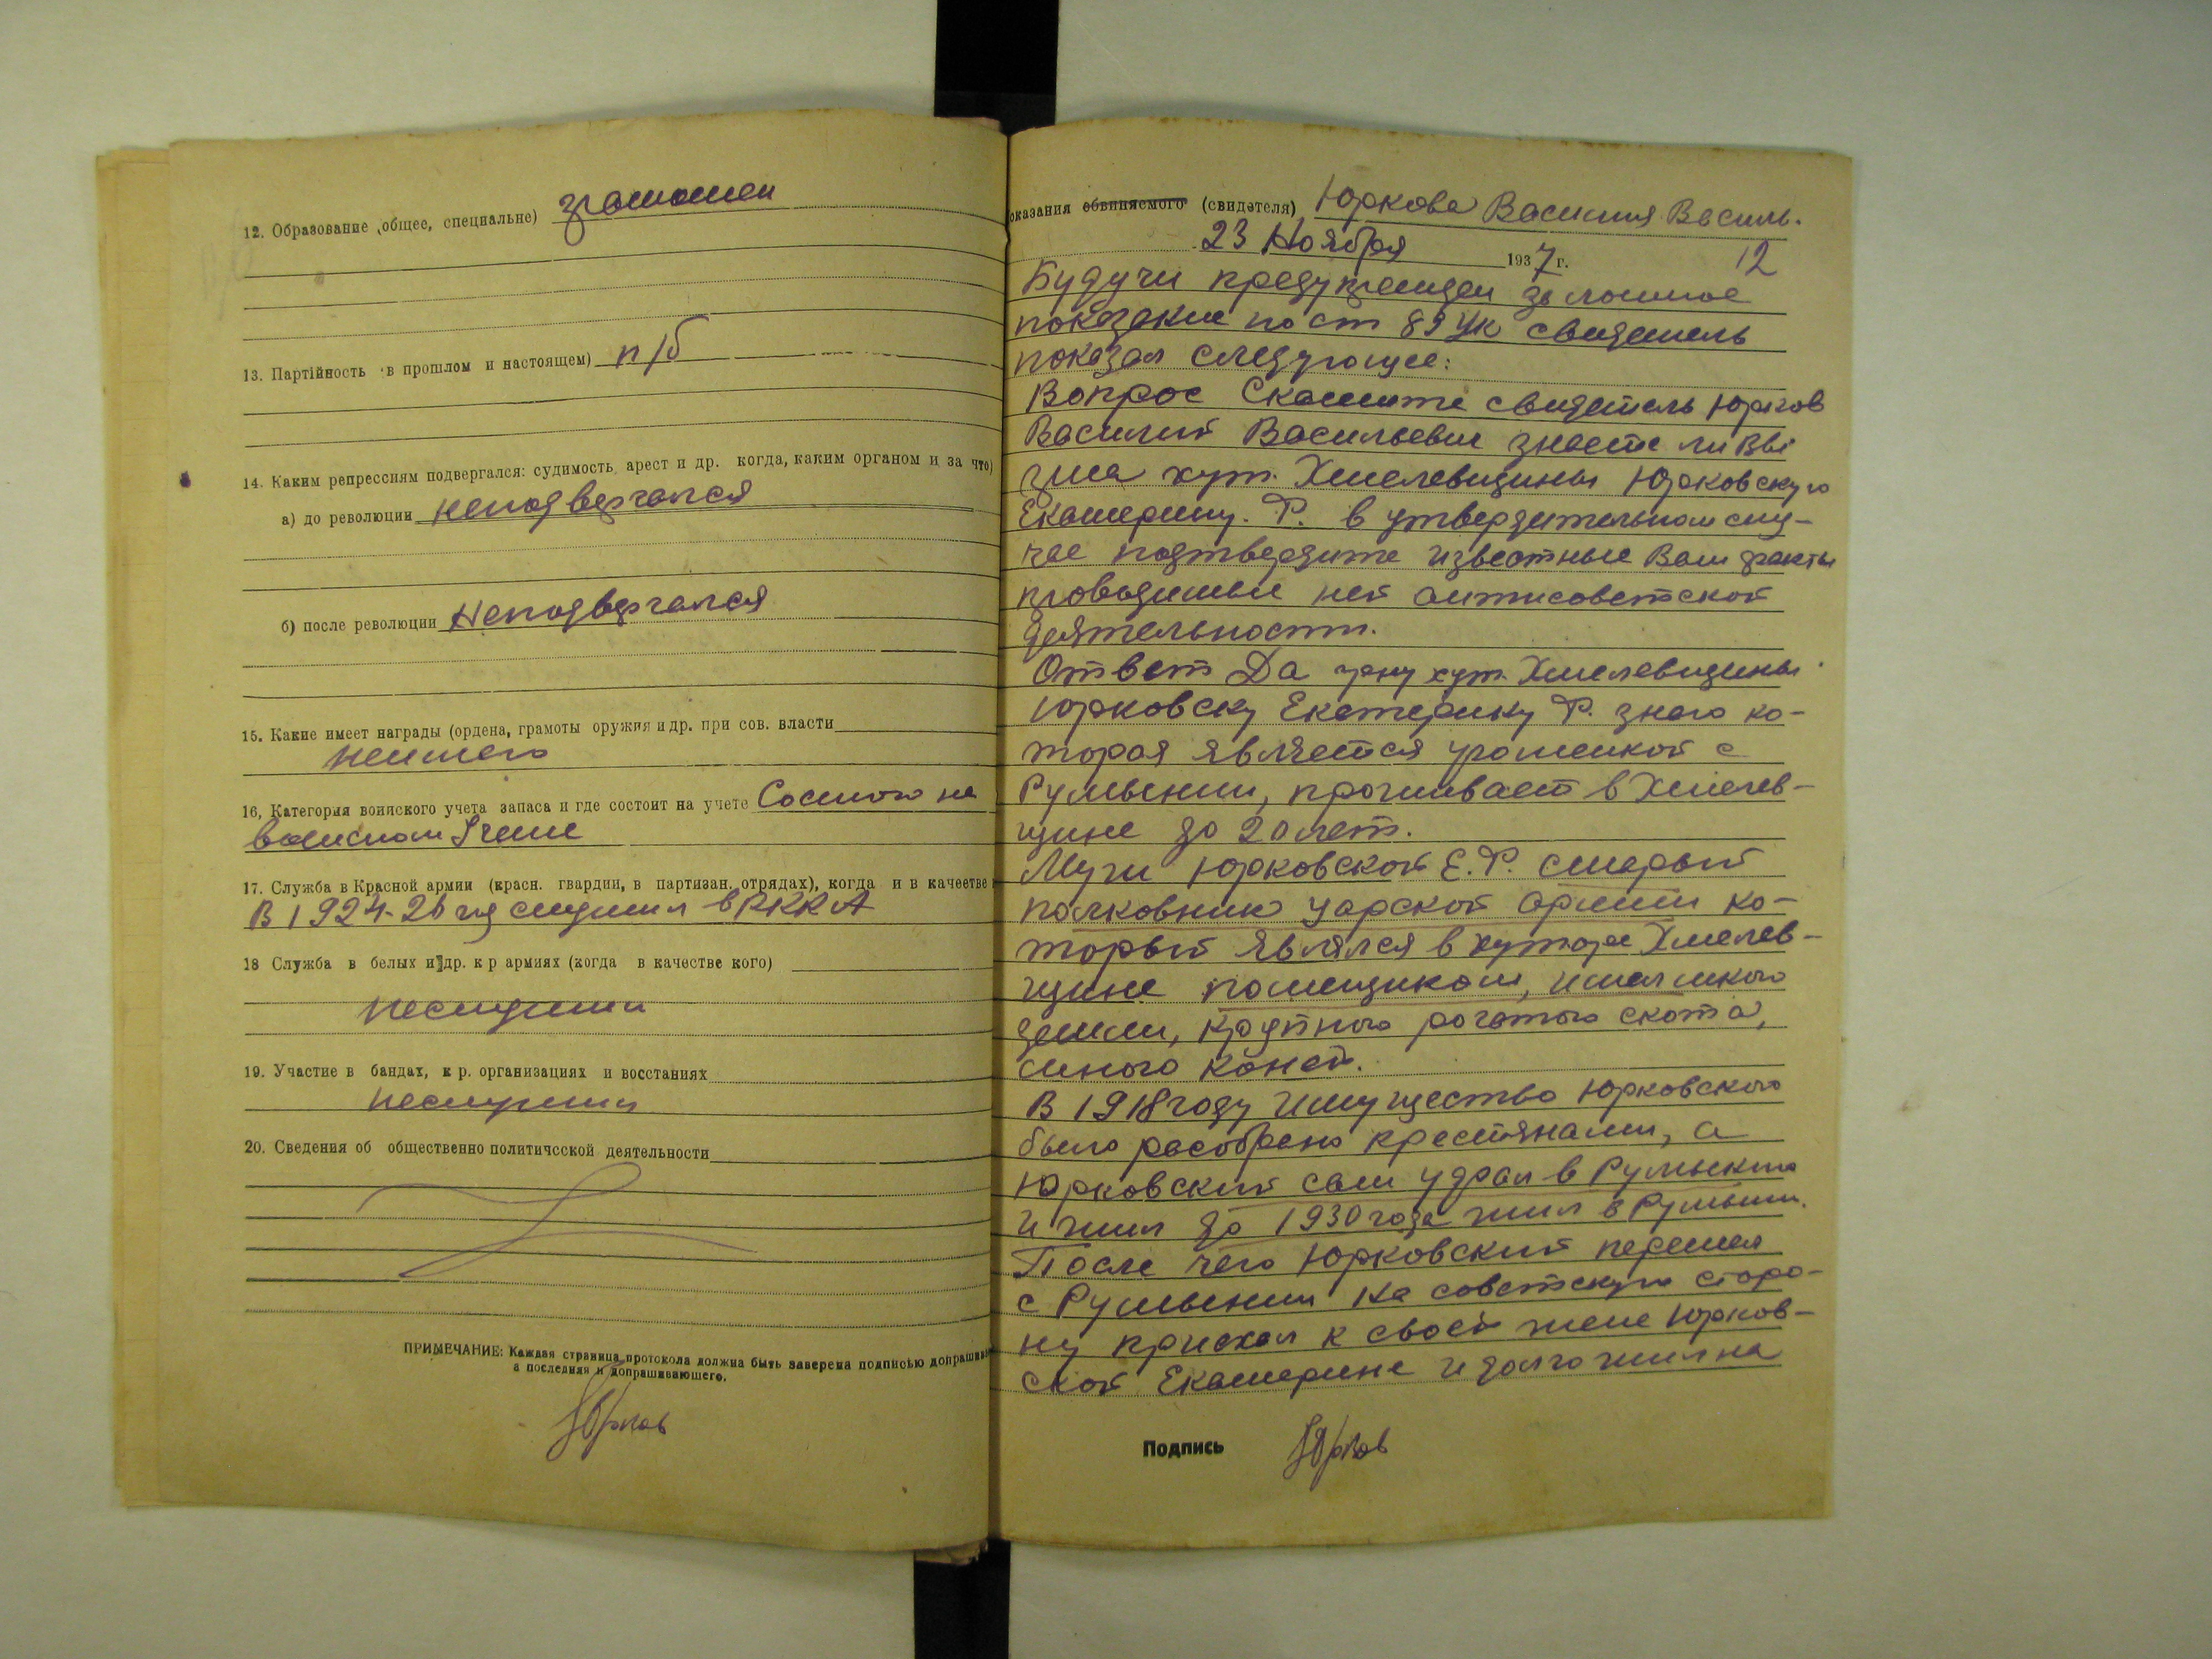 12. Образование (общее, специальне) грамотен
13. Партійность в прошлом и настоящем) п/б
14. Каким репрессиям подвергался: судимость, арест и др. когда, каким органом и за что)
а) до революции неподвергался
б) после революции Неподвергался
15. Какие имеет награды (ордена, грамоты оружия и др. при сов. власти
неимею
16, Категория воинского учета запаса и где состоит на учете Состою на
воинском Учете
17. Служба в Красной армии (красн. гвардии, в партизан. отрядах), когда и в качестве
В 1924-26 год служил в РККА
18 Служба в белых и др. к р армиях (когда в качестве кого)
неслужил
19. Участие в бандах, к р. организациях и восстаниях
неслужил
20. Сведения об общественно политичсской деятельности
ПРИМЕЧАНИЕ: Каждая страница протокола должна быть заверена подписью допрашив
а последняя и допрашивающего.
Юрков
оказания обвиняемого (свидетеля) Юркова Василия Василь.
23 Ноября 1937 г.
12
Будучи предупрежден за ложное
показание по ст 89 УК свидетель
показал следующее:
Вопрос Скажите свидетель Юрков
Василий Васильевич знаете ли Вы
гр-ка хут. Хмелевщины Юрковскую
Екатерину. Ф. в утвердительном слу-
чае подтвердите известные Вам факты
проводимые ней антисоветской
деятельности.
Ответ Да грку хут. Хмелевщины
Юрковску Екатерину Ф. знаю ко-
торая является урожекой с
Румынии, проживает в Хмелев-
щине до 20 лет.
Муж Юрковской Е.Ф. старый
полковник царской армии ко-
торый являлся в хуторе Хмелев-
щине помещиком, имел много
земли, крупного рогатого скота,
много коней.
В 1918 году имущество Юрковского
было расобрано крестянами, а
Юрковский сам удрал в Румынию
и жил до 1930 года жил в Румыни.
После чего Юрковский перешел
с Румынии на советскую сторо-
ну приехал к своей жене Юрков-
ской Екатерине и долго жил на
Подпись Юрков